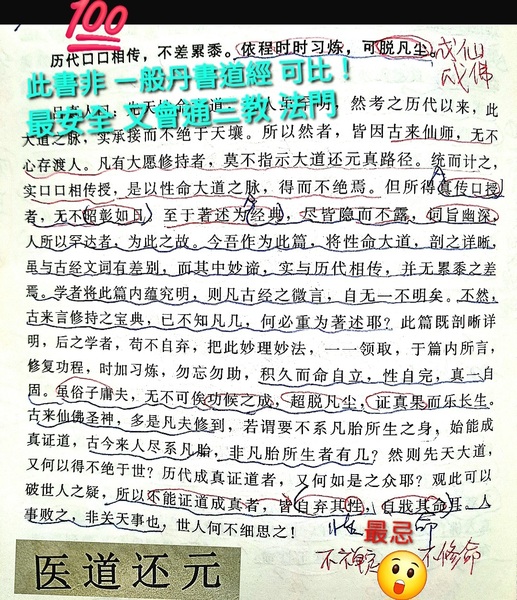 💯
历代口口相传，不差累黍。依程时时习炼，可脱凡尘。成仙
成佛
此書非 一般丹書道經 可比！
最安全 又會通三教 法門
然考之历代以来，此
大道之脉，实承接而不绝于天壤。所以然者，皆因古来仙师，无不
心存渡人。凡有大愿修持者，莫不指示大道还元真路径。统而计之，
实口口相传授，是以性命大道之脉，得而不绝焉。但所得真传口授
者，无不昭彰如日，至于著述为经典，尽皆隐而不露，词旨幽深，
人所以罕达者，为此之故。今吾作此篇，将性命大道，剖之详晰，
虽与古经文词有差别，而其中妙谛，实与历代相传，并无累黍之差
焉。学者将此篇内蕴究明，则凡古经之微言，自无一不明矣。不然，
古来言修持之宝典，已不知凡几，何必重为著述耶？此篇既剖晰详
明，后之学者，苟不自弃，把此妙理妙法，一一领取，于篇内所言，
修复功程，时加习炼，勿忘勿助，积久而命自立，性自完，真一自
固。虽俗子庸夫，无不可俟功候之成，超脱凡尘，证真果而乐长生。
古来仙佛圣神，多是凡夫修到，若谓要不系凡胎所生之身，始能成
真证道，古今来人尽系凡胎，非凡胎所生者有几？然则先天大道，
又何以得不绝于世？历代成真证道者，又何如是之众耶？观此可以
破世人之疑，所以不能证道成真者，皆自弃其性，自戕其命耳。人
事败之，非关天事也，世人何不细思之！
性 命
最忌
不修命
医道还元